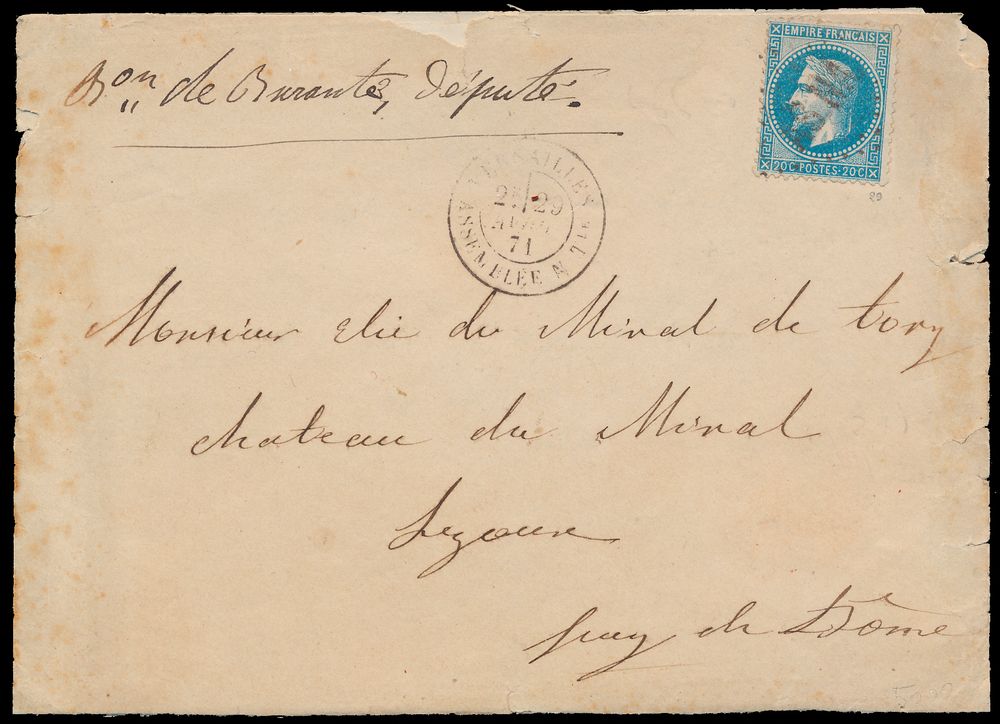 Bon de Barante, député.
EMPIRE FRANÇAIS
20C POSTES 20C
20
VERSAILLES
2E 29
AVRIL
71
ASSEMBLÉE N TLE
Monsieur Elie du Miral de tony
chateau du Miral
Lezoux
puy de Dôme